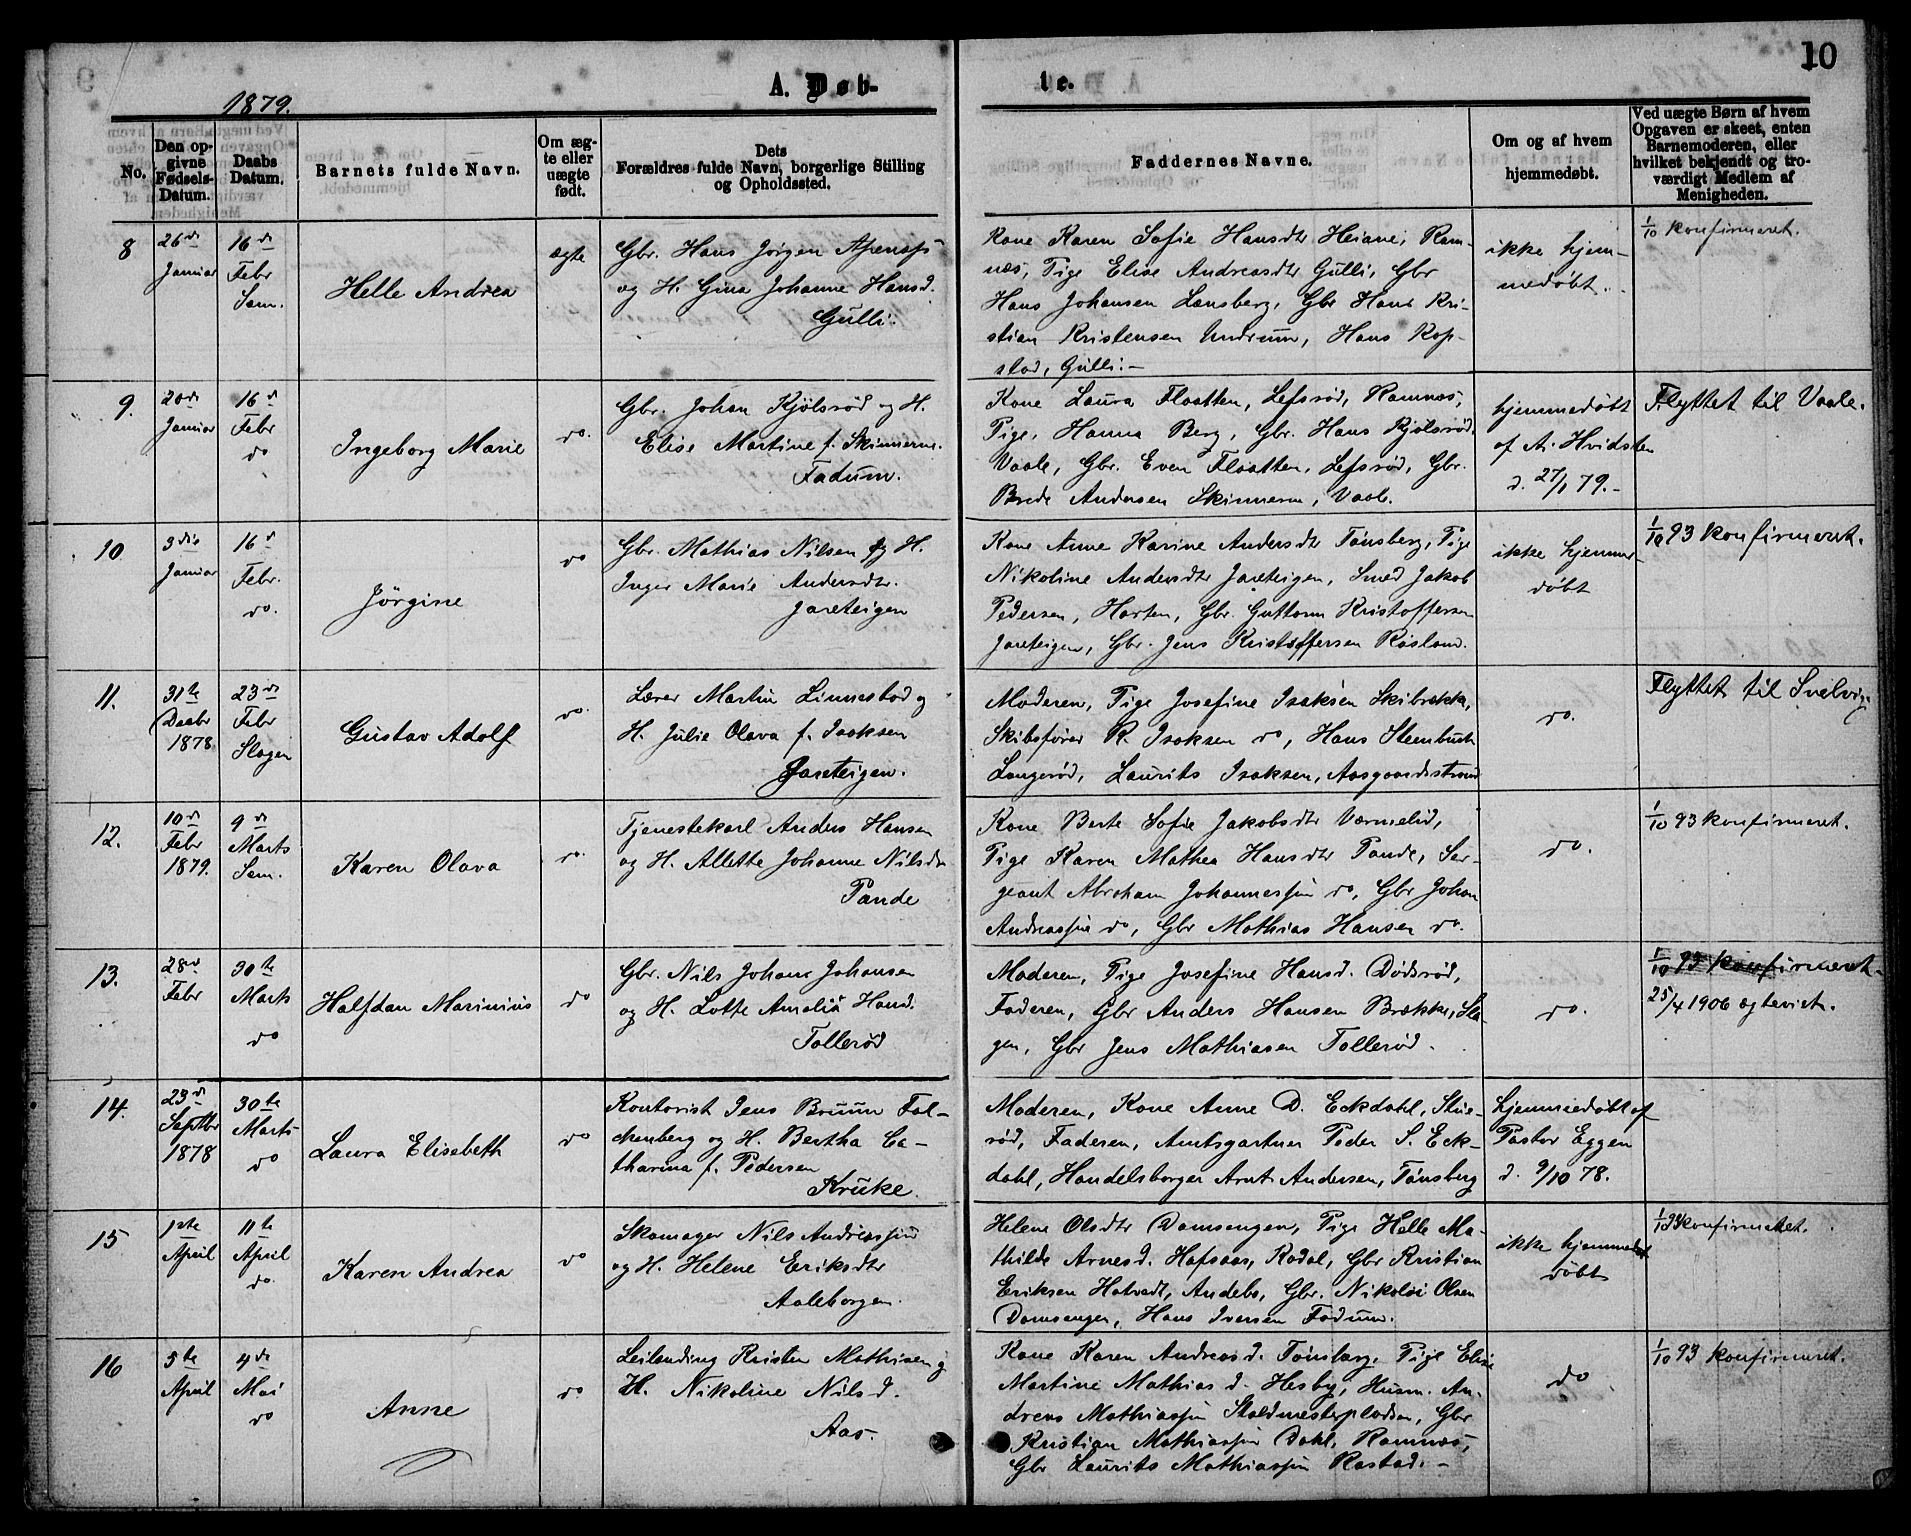 10
A. Døb-
te.
1879.
No.
Den op-
givne
Fødsels-
Datum.
Daabs
Datum.
Barnets fulde Navn.
Om æg-
te eller
uægte
født.
Dets
Forældres fulde Navn, borgerlige Stilling
og Opholdssted.
Faddernes Navne.
Om og af hvem
hjemmedøbt.
Ved uægte Børn af hvem
Opgaven er skeet, enten
Barnemoderen, eller
hvilket bekjendt og tro-
værdigt Medlem af
Menigheden.
8
26de
Januar
16de
Febr
Sem.
Helle Andrea
ægte
Gbr. Hans Jörgen
og H. Gina Johanne Hansd.
Gulli.
Kone Karen Sofie Hansdtr Heiane, Ram-
næs, Pige Elise Andreasdtr Gulli, Gbr
Hans Johansen Lensberg, Gbr Hans Kri-
stian Kristensen Undrum, Hans Kop-
stad, Gulli.-
ikke hjem-
medøbt.
1/10 konfirmeret.
9.
20de
Januar
16d
Febr
do
Ingeborg Marie
do.
Gbr. Johan Kjölsrød og H.
Elise Martine f. Skinnerm.
Fadum.
Kone Laura Flaatten, Lefsrød, Ramnæs,
Pige, Hanna Berg, Gbr. Hans Kjölsrød,
Vaale, Gbr. Even Flaatten, Lefsrød, Gbr.
Brede Andersen Skinnerm, Vaale.
hjemmedøbt
af A. Hvidsten
d. 27/1 79.-
Flyttet til Vaale.
10
3die
Januar
16d
Febr.
do.
Jørgine
do
Gbr. Mathias Nilsen og H.
Inger Marie Andersdtr.
Jareteigen
Kone Anne Karine Andersdtr Tönsberg, Pige
Nikoline Andersdtr Jareteigen, Smed Jakob
Pedersen, Horten, Gbr. Guttorm Kristoffersen
Jareteigen, Gbr. Jens Kristoffersen Røsland.
ikke hjemme-
døbt
1/10 93 konfirmeret.
11.
31te
Decbr
1878
23de
Febr
Slagen
Gustav Adolf
do.
Lærer Martin Linnestad og
H. Julie Olava f. Isaksen
Jareteigen.
Moderen, Pige Josefine Isaksen Skibrekke,
Skibsfører R. Isaksen do, Hans Steenbuch
Langerød, Laurits Isaksen, Aasgaardsstrand
do.
Flyttet til Svelvig.
12.
10de
Febr
1879.
9de
Marts
Sem.
Karen Olava
do.
Tjenestekarl Anders Hansen
og H. Allette Johanne Nilsdtr
Pande
Kone Berte Sofie Jakobsdtr Værmelid,
Pige Karen Mathea Hansdtr Pande, Ser-
geant Abraham Johannessen do, Gbr Johan
Andreassen do, Gbr Mathias Hansen do.
do.
1/10 93 konfirmeret.
13.
28de
Febr
30te
Marts
do
Halfdan Marinius
do
Gbr. Nils Johan Johansen
og H. Lotte Amalia Hansd.
Tollerød
Moderen, Pige Josefine Hansd. Dödsrød,
Faderen, Gbr Anders Hansen Brække, Sla-
gen, Gbr Jens Mathiasen Tollerød.
do.
1/10 93 konfirmeret.
25/4 1906 egteviet.
14.
23de
Septbr
1878
30te
Marts
do
Laura Elisabeth
do
Kontorist Jens Bruun Fal-
ckenberg og H. Bertha Ca-
tharina f. Pedersen
Kruke.
Moderen, Kone Anne D. Eckdahl, Stue-
rød, Faderen, Amtsgartner Peder S. Eck-
dahl, Handelsborger Arnt Andersen, Tønsberg
hjemmedøbt af
Pastor Eggen
d. 9/10 78.
15
1ste
April
11te
April
do.
Karen Andrea
do
Skomager Nils Andreassen
og H. Helene Eriksdtr
Aaleborgen.
Helene Olsdtr Damsengen, Pige Helle Ma-
thilde Arnesd. Hafsaas, Rødal, Gbr Kristian
Eriksen Hotvedt, Andebo, Gbr. Nikolai Olsen
Damsengen, Hans Iversen Fadum.
ikke hjemme-
døbt
1/10 93 konfirmeret.
16
5te
April
4de
Mai
do
Anne
do
Leilending Kristen Mathisen og
H. Nikoline Nilsd.
Aas.
Kone Karen Andreasd. Tönsberg, Pige Elise
Martine Mathiasd. Hesby, Husm. An-
dreas Mathiassen Staldmesterpladsen, Gbr
Kristian Mathiassen Dahl, Ramnæs,
Gbr Laurits Mathiassen Rostad.-
do
1/10 93 konfirmeret.